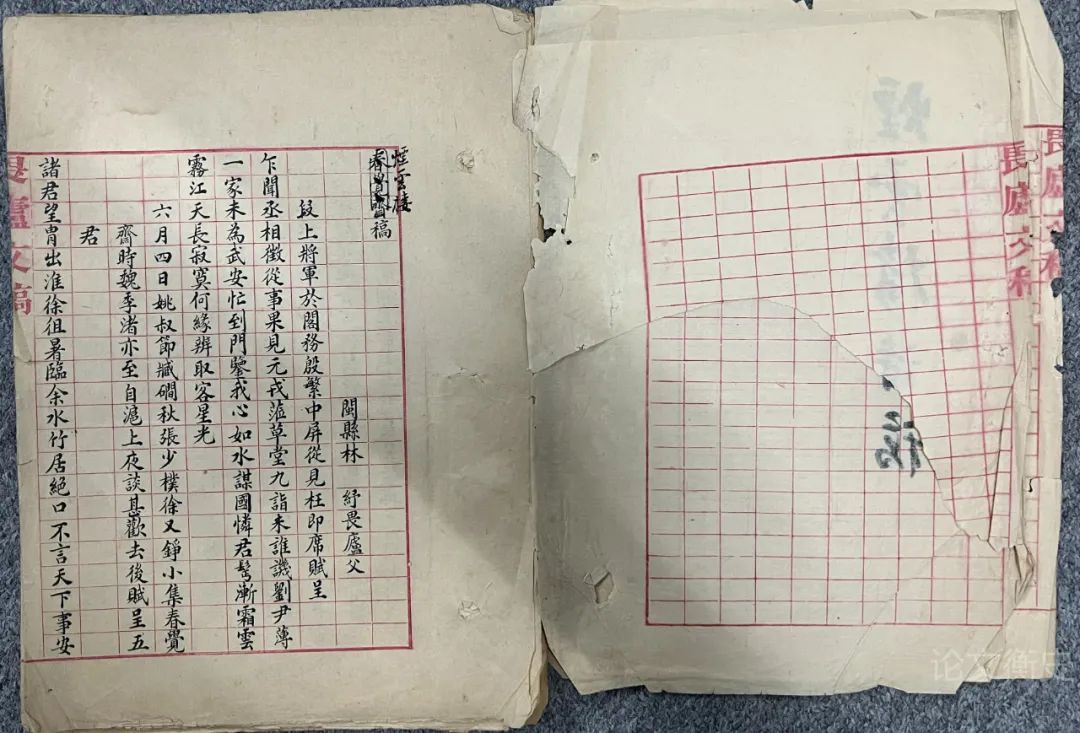 畏廬文稿
畏廬文稿
煙雲樓
春覺齋稿
閩縣林 紓畏廬父
段上將軍於閣務殷繁中屏從見枉即席賦呈
乍聞丞相徵從事果見元戎蒞草堂九詣未誰譏劉尹薄
一家未為武安忙到門鑒我心如水謀國憐君鬢漸霜雲
霧江天長寂寞何緣辨取客星光
六月四日姚叔節臧磵秋張少樸徐又錚小集春覺
齋時魏季渚亦至自滬上夜談甚歡去後賦呈五
君
諸君望胄出淮徐徂暑臨余水竹居絕口不言天下事安
畏廬文稿
论文衡史